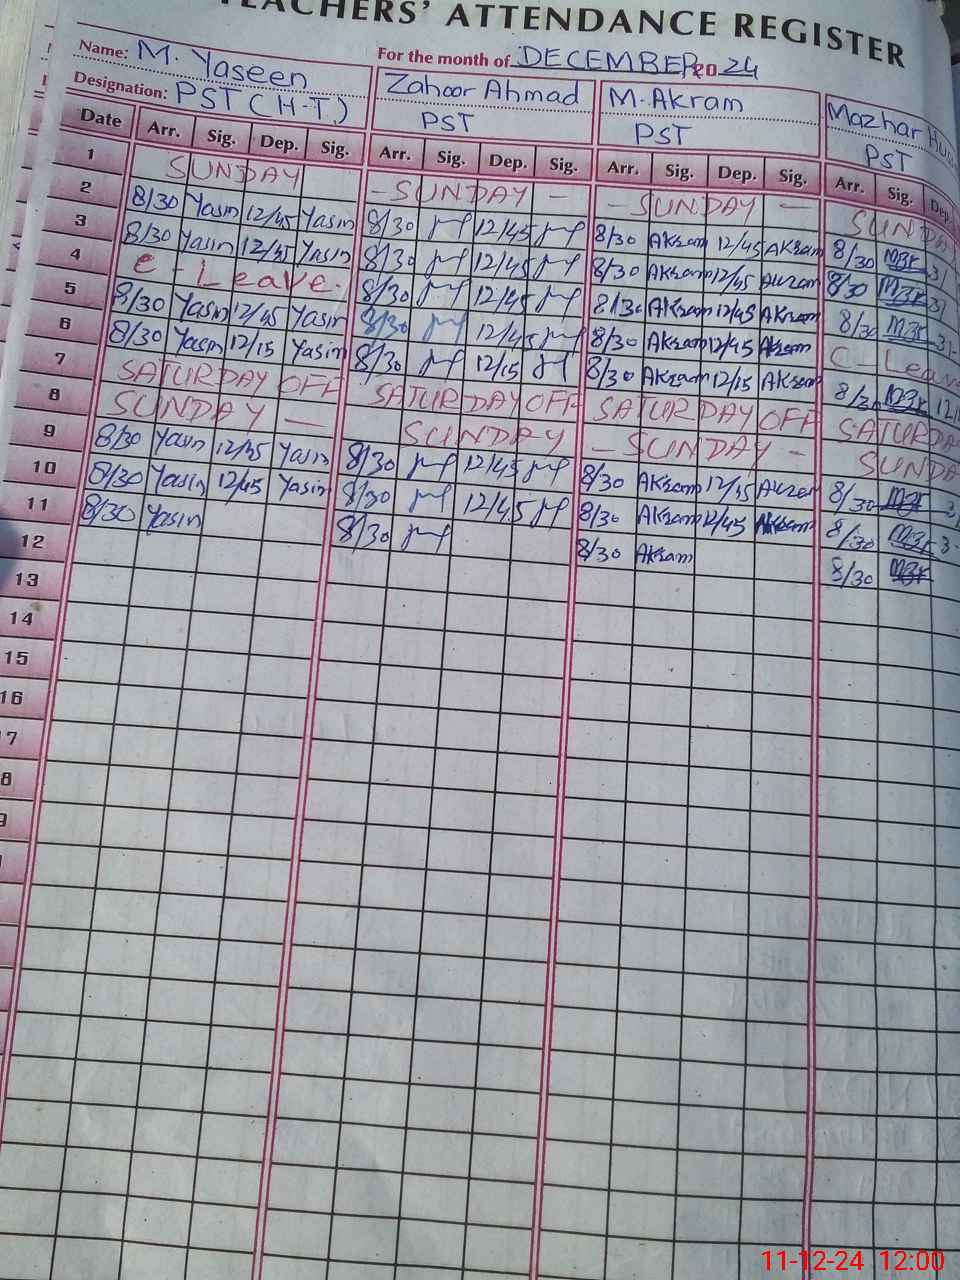 TEACHERS' ATTENDANCE REGISTER
Name: M. Yaseen For the month of DECEMBER 2024
Zahoor Ahmad M. Akram Mazhar
Designation: PST (H-T.) PST PST PST
Date Arr. Sig. Dep. Sig. Arr. Sig. Dep. Sig. Arr. Sig. Dep. Sig. Arr. Sig. Dep.
1 SUNDAY - SUNDAY - - SUNDAY - SUNDA
2 8/30 Yasin 12/45 Yasin 8/30 12/45 8/30 Akram 12/45 Akram 8/30
3 8/30 Yasin 12/45 Yasin 8/30 12/45 8/30 Akram 12/45 Akram 8/30
4 C - Leave. 8/30 12/45 8/30 Akram 12/45 Akram 8/30
5 8/30 Yasin 12/45 Yasin 8/30 12/45 8/30 Akram 12/45 Akram C - Leav
6 8/30 Yasin 12/15 Yasin 8/30 12/15 8/30 Akram 12/15 Akram 8/30
7 SATURDAY OFF SATURDAY OFF SATURDAY OFF SATURDA
8 SUNDAY — SUNDAY - SUNDAY - SUNDA
9 8/30 Yasin 12/45 Yasin 8/30 12/45 8/30 Akram 12/45 Akram 8/30
10 8/30 Yasin 12/45 Yasin 8/30 12/45 8/30 Akram 12/45 Akram 8/30
11 8/30 Yasin 8/30 8/30 Akram 8/30
12
13
14
15
16
7
8
11-12-24 12:00